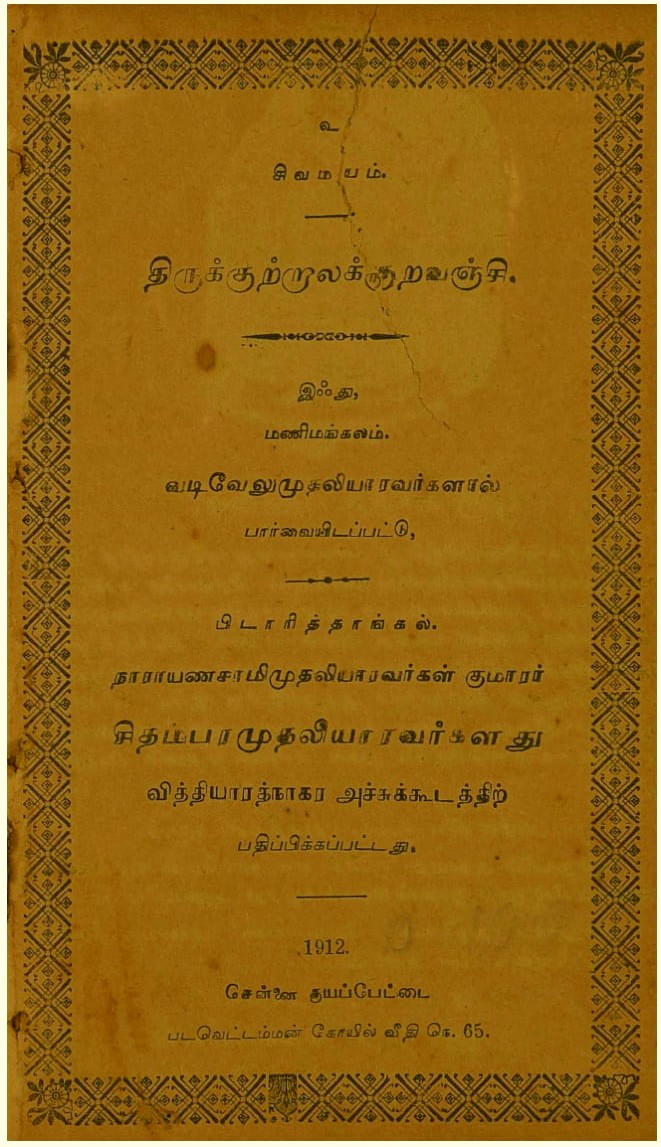 உ
சிவமயம்.
திருக்குற்றாலக்குறவஞ்சி.
இஃது,
மணிமங்கலம்.
வடிவேலுமுதலியாரவர்களால்
பார்வையிடப்பட்டு,
பிடாரித்தாங்கல்.
நாராயணசாமிமுதலியாரவர்கள் குமாரர்
சிதம்பரமுதலியாரவர்களது
வித்தியாரத்நாகர அச்சுக்கூடத்திற்
பதிப்பிக்கப்பட்டது.
1912.
சென்னை தயப்பேட்டை
படவெட்டம்மன் கோயில் வீதி நெ. 65.